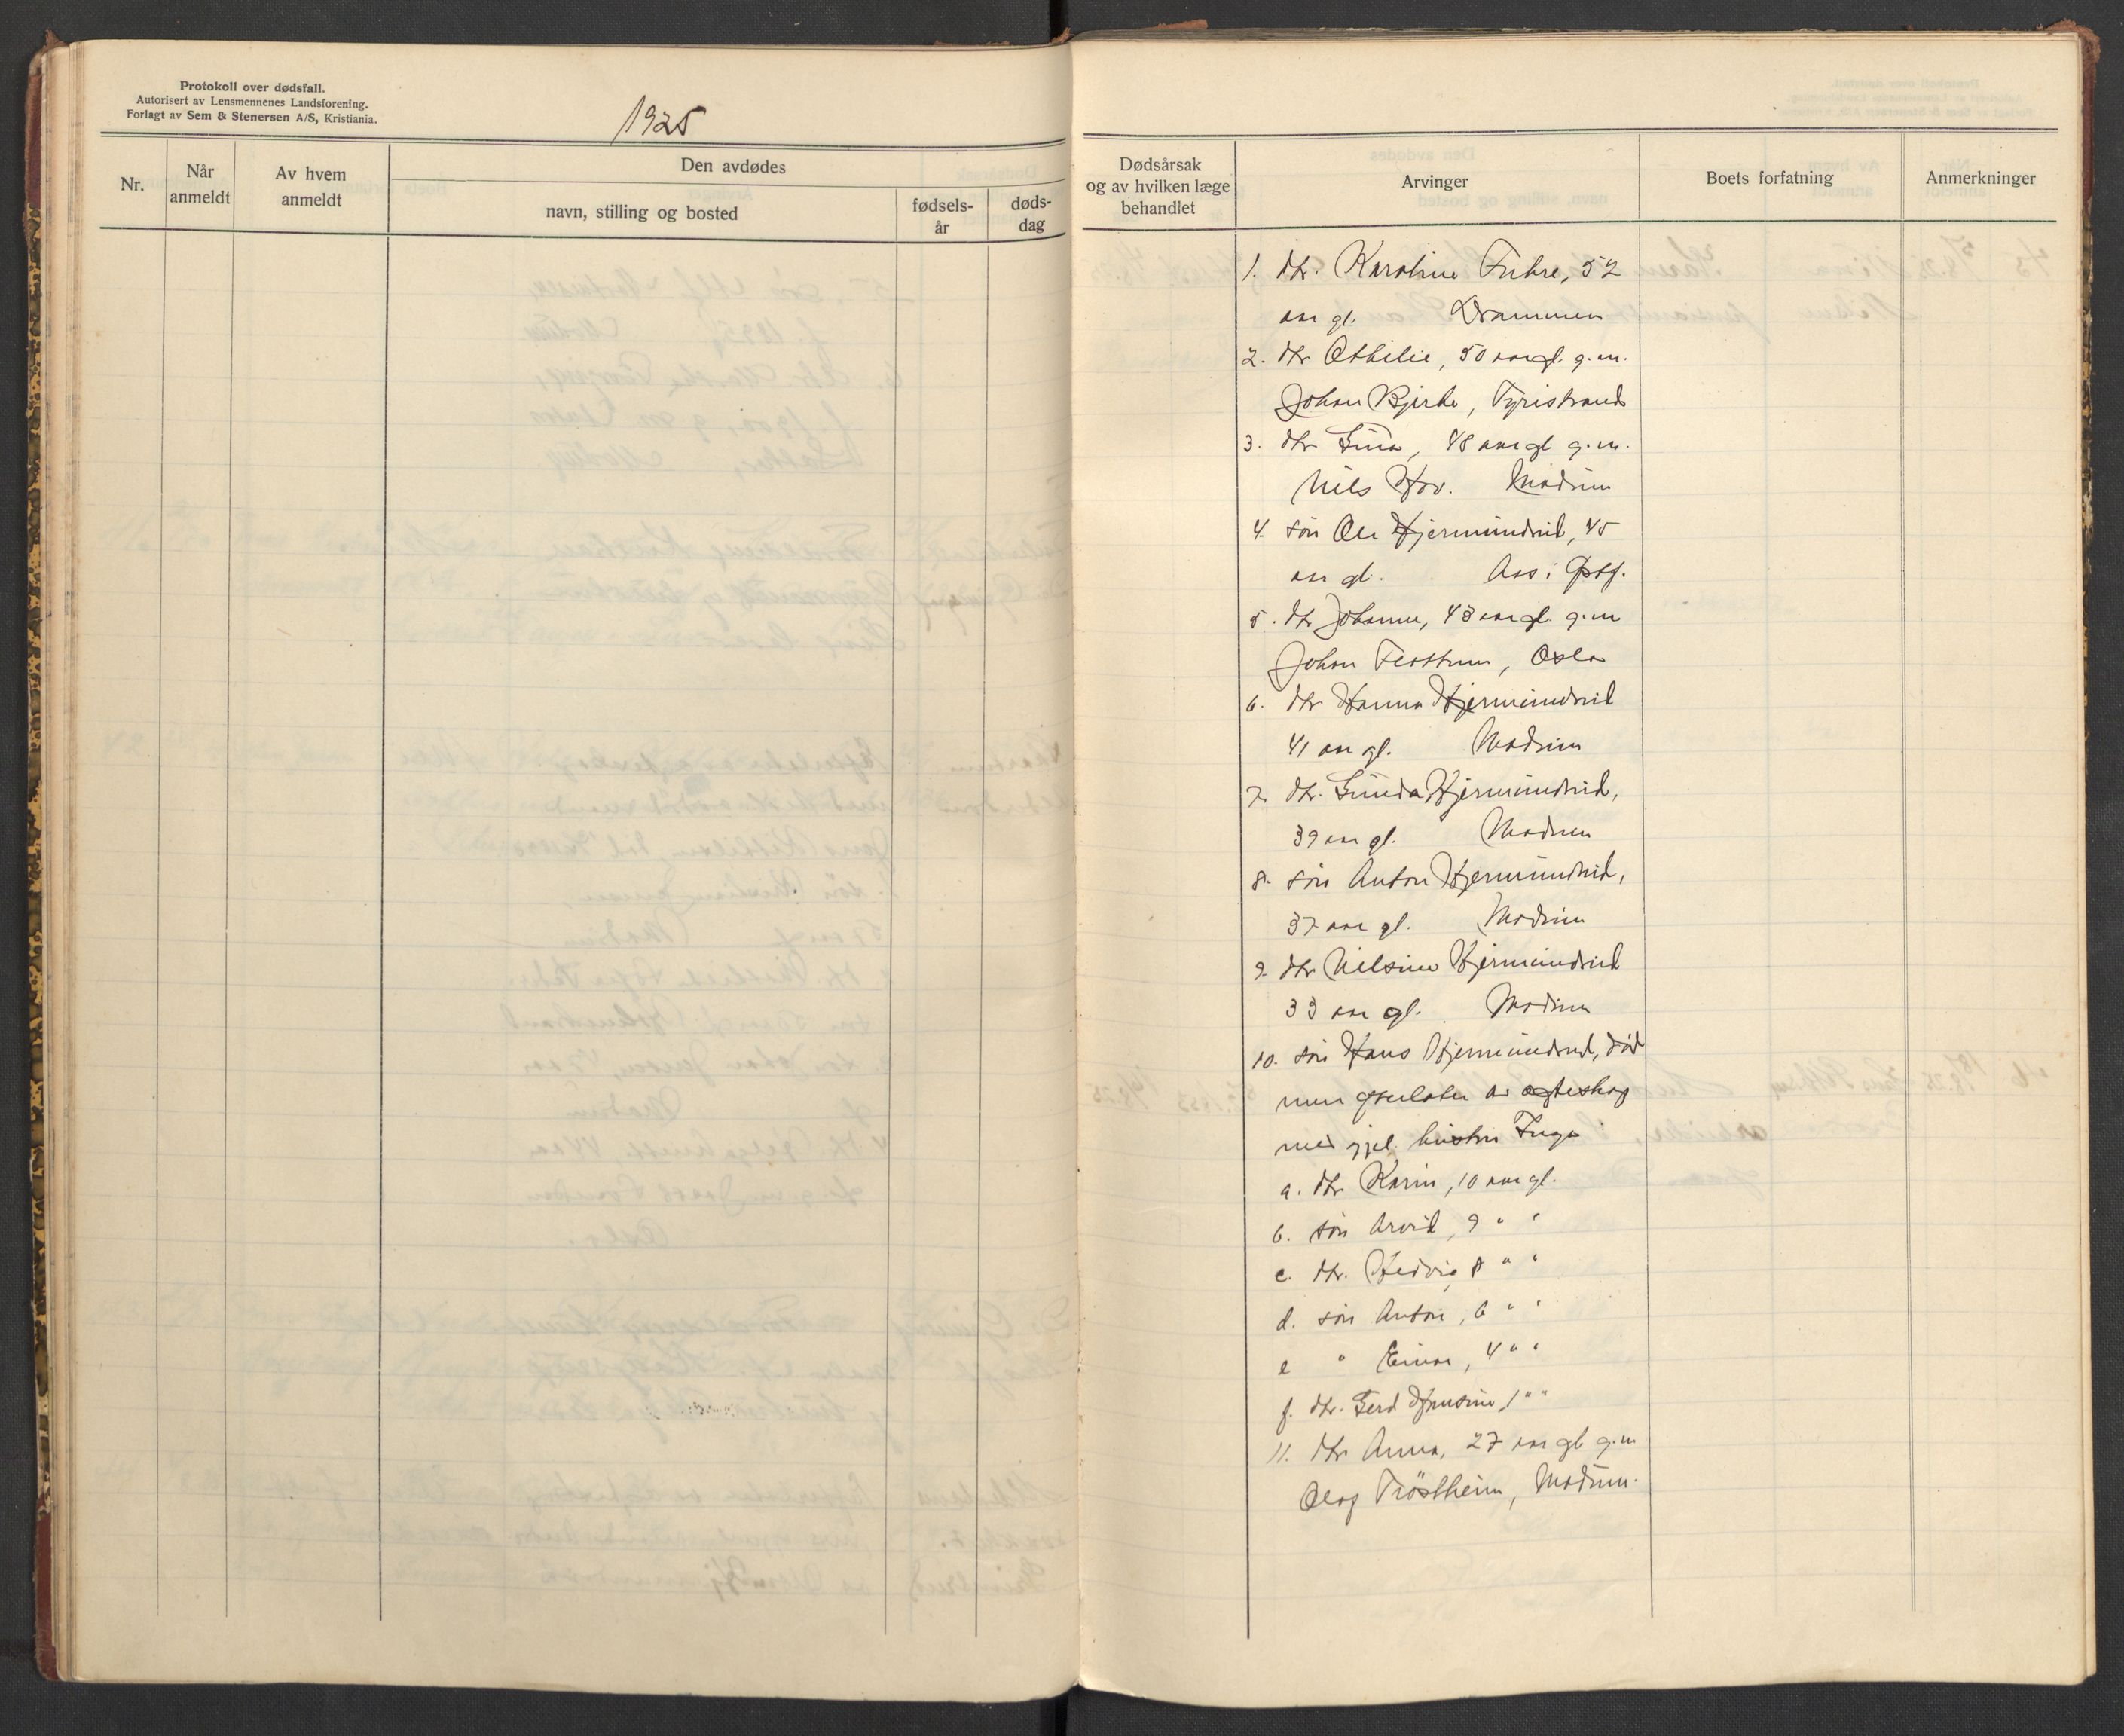 Protokoll over dødsfall.
Autorisert av Lensmennenes Landsforening.
Forlagt av Sem & Stenersen A/S, Kristiania.
1925
Nr.
Når
anmeldt
Av hvem
anmeldt
Den avdødes
navn, stilling og bosted
fødsels-
år
døds-
dag
Dødsårsak
og av hvilken læge
behandlet
Arvinger
Boets forfatning
Anmerkninger
1. dtr. Karoline Fuhre, 52
aar gl. Drammen
2. dtr Othilie, 50 aar gl. g.m.
Johan Bjerke, Tyristrand
3. dtr Gina, 48 aar gl g.m.
Nils Hov. Modum
4. søn Ole Hjermundrud, 45
aar gl. Aas i
5. dtr Johanne, 43 aar gl. g.m
Johan, Oslo
6. dtr Hanna Hjermundrud
41 aar gl. Modum
7. dtr. Gunda Hjermundrud,
39 aar gl. Modum
8. søn Anton Hjermundrud,
37 aar gl. Modum
9. dtr Nilsine Hjermundrud
33 aar gl. Modum
10. søn Hans Hjermundrud, död
men efterlater av egteskap
med gjel. hustru Inga
a. dtr Karin, 10 aar gl.
b. søn Arvid, 9 " "
c. dtr. Hedvig 8 " "
d. søn Anton, 6 " "
e " Einar, 4 " "
f. dtr. Gerd Hansine, 1 " "
11. dtr Anna, 27 aar gl g.m
Olaf Tröstheim, Modum.